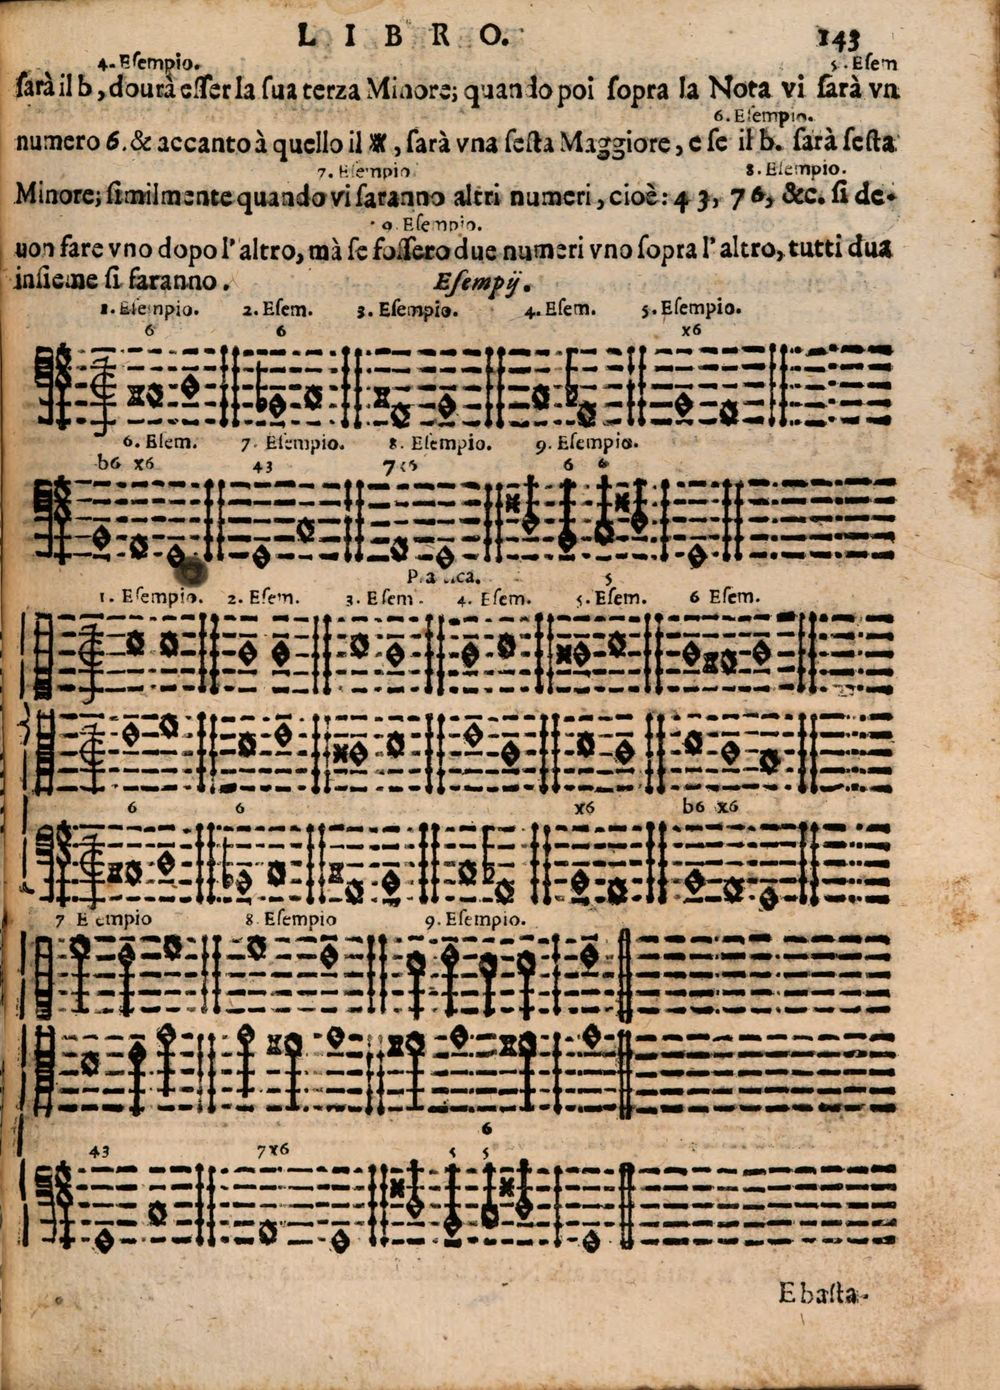 LIBRO. 143
4. Esempio. 5. Esem
sarà il b, dourà esser la sua terza Minore; quando poi sopra la Nota vi sarà vn
6. Esempio.
numero 6. & accanto à quello il ※, sarà vna sesta Maggiore, e se il b. sarà sesta
7. Esempio 8. Esempio.
Minore; similmente quando vi saranno altri numeri, cioè: 4 3, 7 6, &c. si de-
9 Esempio.
uon fare vno dopo l'altro, mà se fossero due numeri vno sopra l'altro, tutti dua
insieme si faranno. Esempij.
1. Esempio. 2. Esem. 3. Esempio. 4. Esem. 5. Esempio.
6 6 x6
6. Esem. 7. Esempio. 8. Esempio. 9. Esempio.
b6 x6 43 6 6
5
1. Esempio. 2. Esem. 3. Esem. 4. Esem. 5. Esem. 6 Esem.
6 6 x6 b6 x6
7 Esempio 8 Esempio 9. Esempio.
6
43 7x6 5 5
E basta.